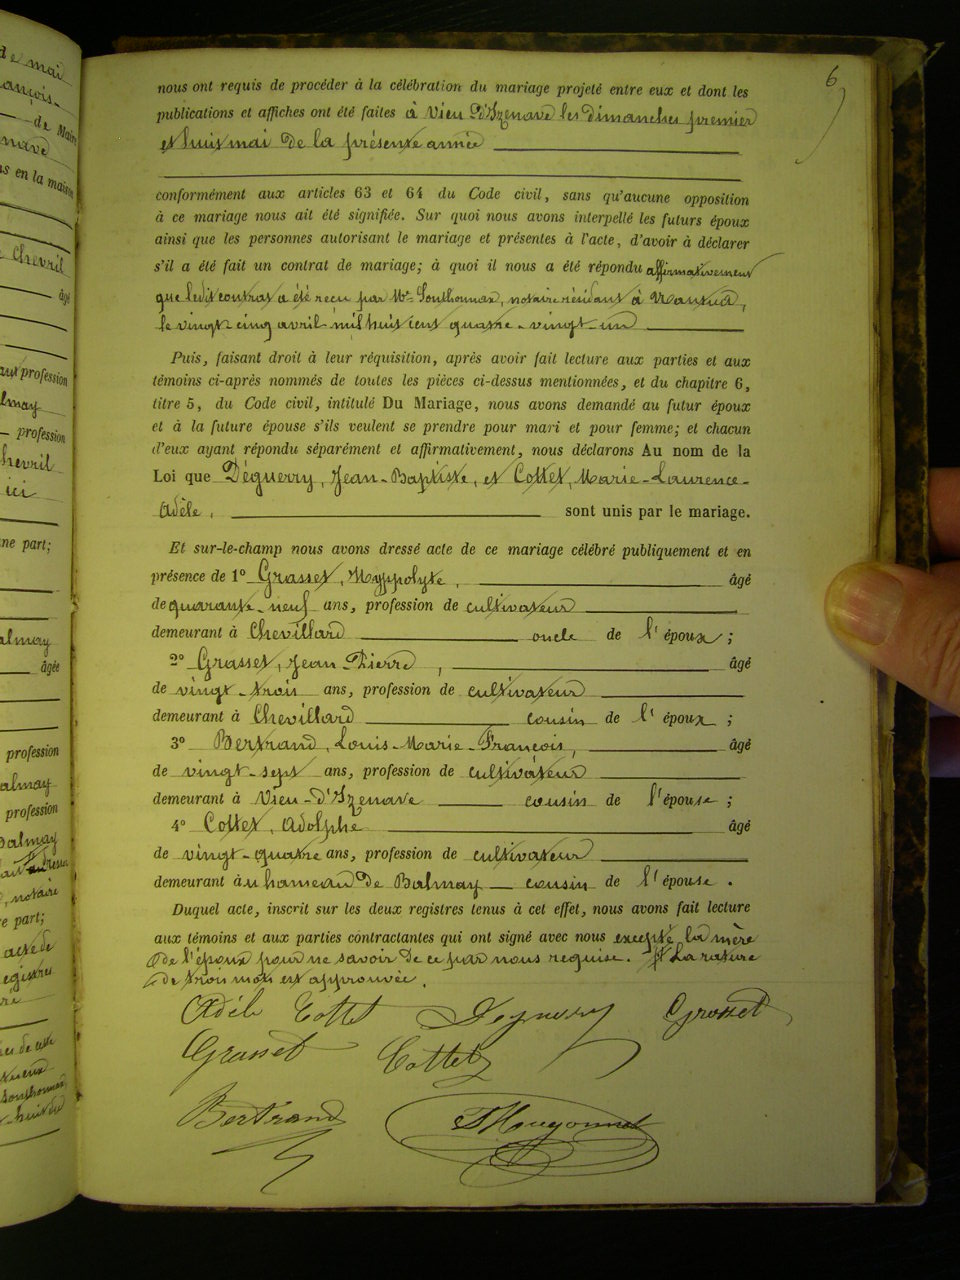 de mai
ançois
de Mairi
s en la maison
Chevril
âgé
profession
lmay
profession
hevril
ici
ne part;
almay
âgée
profession
almay
profession
Balmay
notaire
e part;
acte de
egistres
6
nous ont requis de procéder à la célébration du mariage projeté entre eux et dont les
publications et affiches ont été faites à Vieu D'Izenave les dimanches premier
et huit mai de la présente année
conformément aux articles 63 et 64 du Code civil, sans qu'aucune opposition
à ce mariage nous ait été signifiée. Sur quoi nous avons interpellé les futurs époux
ainsi que les personnes autorisant le mariage et présentes à l'acte, d'avoir à déclarer
s'il a été fait un contrat de mariage; à quoi il nous a été répondu affirmativement
que ledit contrat a été reçu par Me Sonthonnax, notaire résidant à Nantua,
le vingt-cinq avril mil huit cent quatre-vingt-un
Puis, faisant droit à leur réquisition, après avoir fait lecture aux parties et aux
témoins ci-après nommés de toutes les pièces ci-dessus mentionnées, et du chapitre 6,
titre 5, du Code civil, intitulé Du Mariage, nous avons demandé au futur époux
et à la future épouse s'ils veulent se prendre pour mari et pour femme; et chacun
d'eux ayant répondu séparément et affirmativement, nous déclarons Au nom de la
Loi que Déguerry, Jean-Baptiste, et Cottet, Marie-Laurence-
Adèle, sont unis par le mariage.
Et sur-le-champ nous avons dressé acte de ce mariage célébré publiquement et en
présence de 1° Grasset, Hyppolyte, âgé
de quarante-neuf ans, profession de cultivateur
demeurant à Chevillard oncle de l'époux;
2° Grasset, Jean-Pierre, âgé
de vingt-trois ans, profession de cultivateur
demeurant à Chevillard cousin de l'époux;
3° Bertrand, Louis-Marie-François, âgé
de vingt-sept ans, profession de cultivateur
demeurant à Vieu-d'Izenave cousin de l'épouse;
4° Cottet, Adolphe âgé
de vingt-quatre ans, profession de cultivateur
demeurant àu hameau de Balmay cousin de l'épouse.
Duquel acte, inscrit sur les deux registres tenus à cet effet, nous avons fait lecture
aux témoins et aux parties contractantes qui ont signé avec nous excepté la mère
de l'époux pour ne savoir de ce par nous requise. La rature
de trois mots est approuvée.
Adèle Cottet Deguerry Grasset
Grasset Cottet
Bertrand Hugonnet